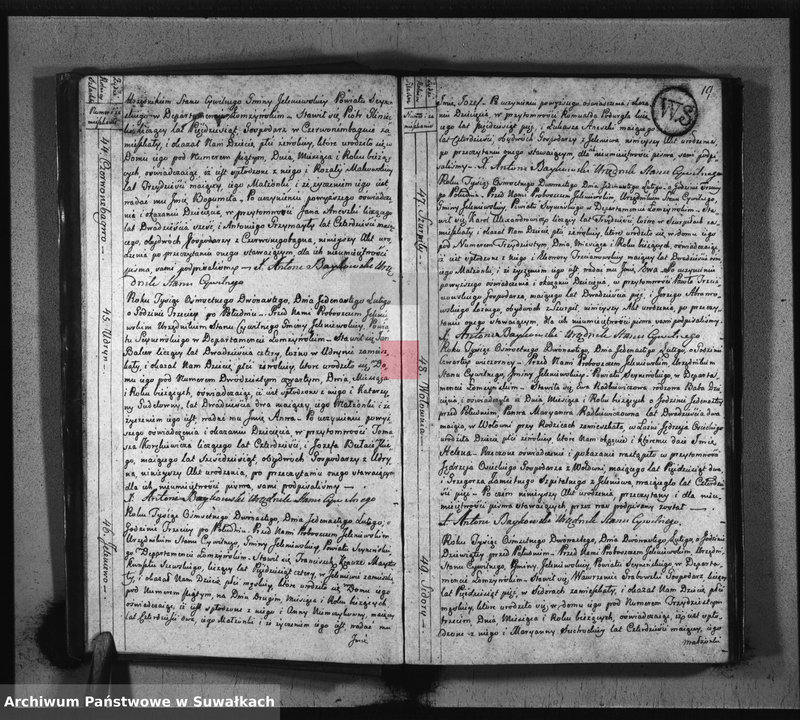 Urzędnikiem Stanu Cywilnego Gminy Jeleniewskiey Powiatu
Departamencie Łomżyńskim - Stawił się Piotr
liczący lat Pięćdziesiąt Gospodarz w Czerwonembagnie za-
mieszkały, i okazał Nam Dziécię płci żeńskiey, które urodziło się w
Domu iego pod Numerem piątym, Dnia, Miesiąca i Roku bieżą-
cych oświadczaiąc iż iest spłodzone z niego i Rozalii
lat Trzydzieści maiącey, iego Małżonki, i że życzeniem iego iest
nadać mu Jmie Bogumiła, Po uczynieniu powyższego oświadcze-
nia i okazaniu Dziecięcia, w przytomności Jana liczącego
lat Dwadzieścia sześć, i Antoniego lat Czterdzieści maią-
cego, obydwóch Gospodarzy z Czerwonegobagna, ninieyszy Akt uro-
dzenia po przeczytaniu onego stawaiącym dla ich nieumieiętności
pisma, sami podpisaliśmy - X. Antoni Baykowski Urzę-
dnik Stanu Cywilnego
Roku Tysiąc Ośmsetnego Dwunastego, Dnia Jedenastego Lutego
o Godzinie Trzeciey po Południu - Przed Nami Proboszczem Jeleniew-
skim Urzędnikiem Stanu Cywilnego Gminy Jeleniewskiey, Powia-
tu Seyneńskiego w Departamencie Łomżyńskim - Stawił się Jan
liczący lat Dwadzieścia cztery, w Udrynie zamiesz-
kały, i okazał Nam Dziécię płci żeńskiey, które urodziło się w Do-
mu iego pod Numerem Dwudziestym czwartym, Dnia, Miesiąca
i Roku bieżących, oświadczaiąc, iż iest spłodzone z niego i Katarzy-
ny lat Dwadzieścia dwa maiącey, iego Małżonki i że
życzeniem iego iest nadać mu Jmie Anna - Po uczynieniu powyż-
szego oświadczenia i okazaniu Dziecięcia w przytomności Toma-
sza liczącego lat Czterdzieści, i Józefa
maiącego lat Sześćdziesiąt, obydwóch Gospodarzy z Udry-
na, ninieyszy Akt urodzenia, po przeczytaniu onego stawaiącym
dla ich nieumieiętności pisma, sami podpisaliśmy -
X. Antoni Baykowski Urzędnik Stanu Cywilnego
Roku Tysiąc Ośmsetnego Dwunastego, Dnia Jedenastego Lutego, o
Godzinie Trzeciey po Południu - Przed Nami Proboszczem Jeleniewskim
Urzędnikiem Stanu Cywilnego, Gminy Jeleniewskiey, Powiatu Seyneńskie-
go Departamencie Łomżyńskim - Stawił się Franciszek
liczący lat Pięćdziesiąt cztery, w Jeleniewie zamieszka-
ły, i okazał Nam Dziécię płci męskiey, które urodziło się w Domu iego
pod Numerem piątym, na Dniu Drugim, Miesiąca i Roku bieżących
oświadczaiąc, iż iest spłodzone z niego i Anny maiącey
lat Czterdzieści dwa, iego Małżonki i że życzeniem iego iest nadać mu
Jmie
44. Czerwonebagno -
45. Udryn -
46. Jeleniewo -
19
WS
Jmie Jozef - Po uczynieniu powyższego oświadczenia i okaza-
niu Dziecięcia, w przytomności Romualda liczą-
cego lat Pięćdziesiąt pięć, i Łukasza maiącego
lat Czterdzieści, obydwóch Gospodarzy z Jeleniewa ninieyszy Akt urodzenia,
po przeczytaniu onego stawaiącym, dla nieumieiętności pisma sami podpi-
saliśmy - X. Antoni Baykowski Urzędnik Stanu Cywilnego
Roku Tysiąc Ośmsetnego Dwunastego Dnia Jedenastego Lutego, o Godzinie
Południu - Przed Nami Proboszczem Jeleniewskim, Urzędnikiem Stanu Cywilnego,
Gminy Jeleniewskiey, Powiatu Seyneńskiego w Departamencie Łomżyńskim - Sta-
wił się Karol liczący lat Trzydzieści, w Szurpiłach za-
mieszkały, i okazał Nam Dziécię płci żeńskiey, które urodziło się w Domu iego
pod Numerem Trzydziestym, Dnia, Miesiąca i Roku bieżących, oświadczaiąc,
iż iest spłodzone z niego i Eleonory maiącey lat Dwadzieścia
iego Małżonki, i że życzeniem iego iest, nadać mu Jmie, Ewa - Po uczynieniu
powyższego oświadczenia i okazaniu Dziecięcia, w przytomności Pawła
Gospodarza, maiącego lat Dwadzieścia pięć, i Jerzego
obydwóch z Szurpił ninieyszy Akt urodzenia, po przeczy-
taniu onego stawaiącym. dla ich nieumieiętności pisma, sami podpisaliśmy.
X. Antoni Baykowski Urzędnik Stanu Cywilnego.
Roku Tysiąc Ośmsetnego Dwunastego, Dnia Jedenastego Lutego, o Godzinie
czwartey wieczorney - Przed Nami Proboszczem Jeleniewskim Urzędnikiem
Stanu Cywilnego, Gminy Jeleniewskiey, Powiatu Seyneńskiego, w Departa-
mencie Łomżyńskim - Stawiła się Ewa Radkiewiczowa
i oświadczyła iż Dnia, Miesiąca i Roku bieżących o Godzinie Jedenastey
przed Południem, Panna Maryanna Radkiewiczowna lat Dwadzieścia dwa
maiąca, w Wołowni przy Rodzicach zamieszkała,
urodziła Dziécię płci żeńskiey które Nam okazuie i któremu daie Jmie,
Helena - Rzeczone oświadczenie i pokazanie nastąpiło w przytomności
Jędrzeja Gospodarza z Wołowni, maiącego lat Pięćdziesiąt dwa,
i Grzegorza Szpitalnego z Jeleniewa, maiącego lat Czterdzie-
ści pięć - Po czem ninieyszy Akt urodzenia przeczytany i dla nieu-
mieiętności pisma stawaiących, przez nas podpisany został -
X. Antoni Baykowski Urzędnik Stanu Cywilnego.
Roku Tysiąc Ośmsetnego Dwunastego, Dnia Dwunastego Lutego, o Godzinie
Dziewiątey przed Południem - Przed Nami Proboszczem Jeleniewskim, Urzędn:
Stanu Cywilnego, Gminy Jeleniewskiey, Powiatu Seyneńskiego w Departa-
mencie Łomżyńskim - Stawił się Wawrzeniec Grabowski Gospodarz liczący
lat Pięćdziesiąt pięć, w Sidorach zamieszkały, i okazał Nam Dziécię płci
męskiey, które urodziło się w Domu iego pod Numerem Trzydziestym
trzecim, Dnia, Miesiąca i Roku bieżących, oświadczaiąc, iż iest spło-
dzone z niego i Maryanny lat Czterdzieści maiącey, iego
małżonki
47. Szurpiły
48. Wołownia
49. Sidory
Archiwum Państwowe w Suwałkach